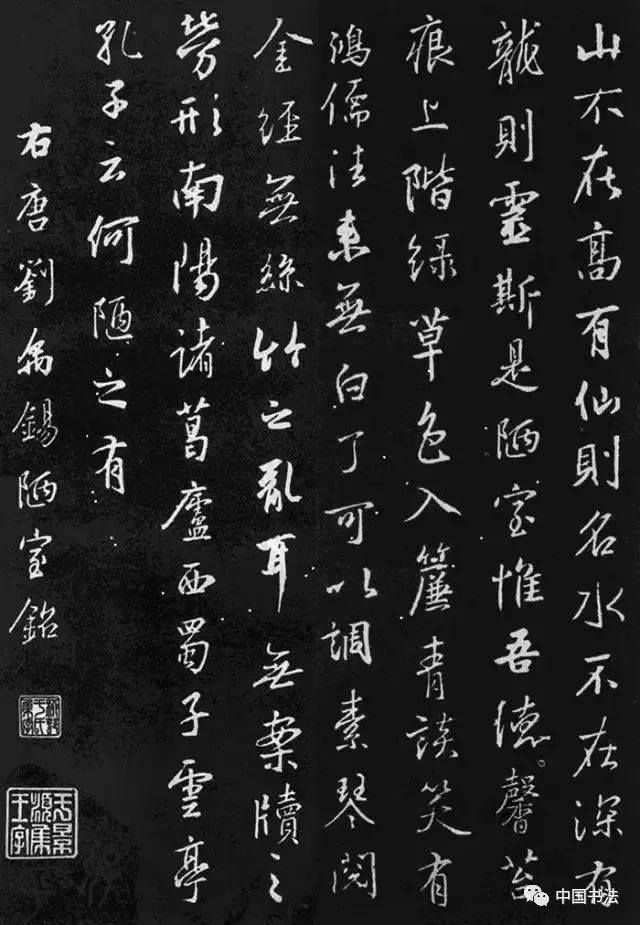 山不在高有仙則名水不在深有
龍則靈斯是陋室惟吾德馨苔
痕上階綠草色入簾青談笑有
鴻儒往來無白丁可以調素琴閱
金經無絲竹之亂耳無案牘之
勞形南陽諸葛廬西蜀子雲亭
孔子云何陋之有
右唐劉禹錫陋室銘
中国书法